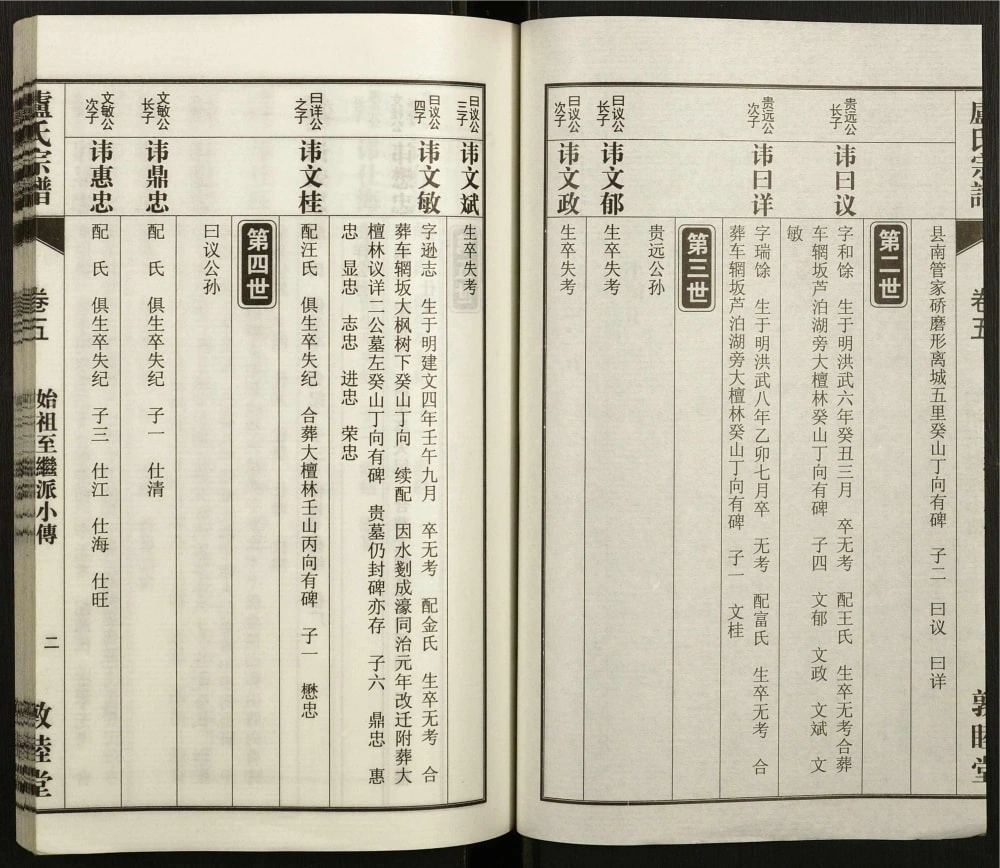 盧氏宗譜
卷五
敦睦堂
县南管家硚磨形离城五里癸山丁向有碑 子二 曰议 曰详
第二世
贵远公
长子
讳曰议
字和馀 生于明洪武六年癸丑三月 卒无考 配王氏 生卒无考合葬
车辋坂芦泊湖旁大檀林癸山丁向有碑 子四 文郁 文政 文斌 文
敏
贵远公
次子
讳曰详
字瑞馀 生于明洪武八年乙卯七月卒 无考 配富氏 生卒无考 合
葬车辋坂芦泊湖旁大檀林癸山丁向有碑 子一 文桂
第三世
贵远公孙
曰议公
长子
讳文郁
生卒失考
曰议公
次子
讳文政
生卒失考
曰议公
三子
讳文斌
生卒失考
曰议公
四子
讳文敏
字逊志 生于明建文四年壬午九月 卒无考 配金氏 生卒无考 合
葬车辋坂大枫树下癸山丁向 续配 因水剗成濠同治元年改迁附葬大
檀林议详二公墓左癸山丁向有碑 贵墓仍封碑亦存 子六 鼎忠 惠
忠 显忠 志忠 进忠 荣忠
曰详公
之子
讳文桂
配汪氏 俱生卒失纪 合葬大檀林壬山丙向有碑 子一 懋忠
第四世
曰议公孙
文敏公
长子
讳鼎忠
配 氏 俱生卒失纪 子一 仕清
文敏公
次子
讳惠忠
配 氏 俱生卒失纪 子三 仕江 仕海 仕旺
盧氏宗譜
卷五
始祖至繼派小傳
二
敦睦堂